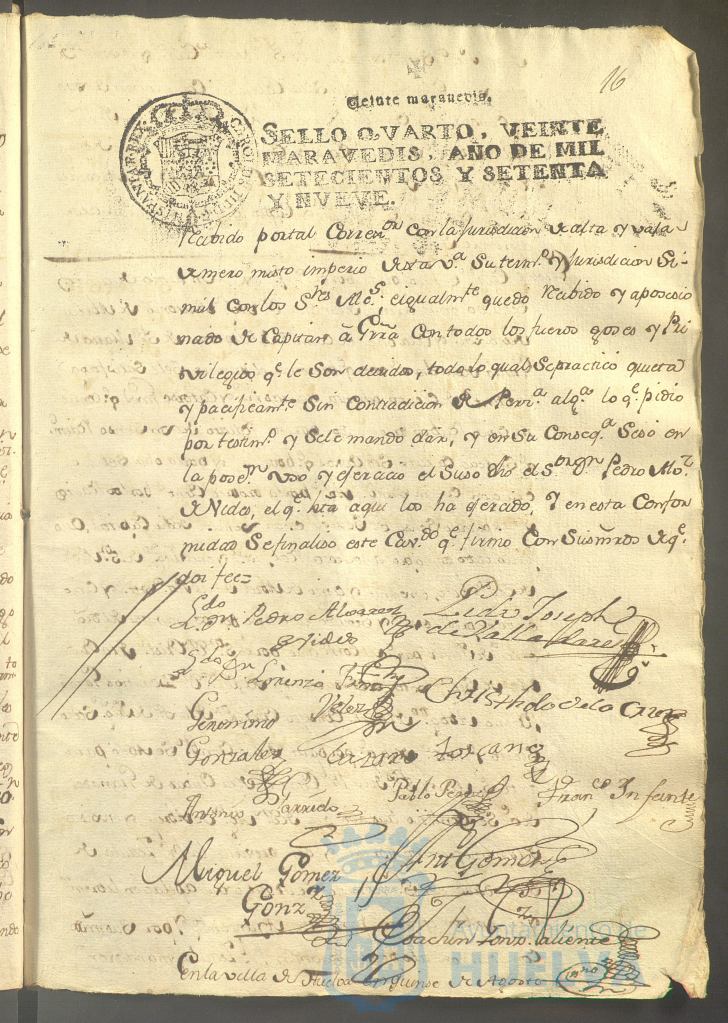 16
Veinte maravedis.
SELLO QVARTO, VEINTE
MARAVEDIS, AÑO DE MIL
SETECIENTOS Y SETENTA
Y NVEVE.
recibido por tal Correxor con la Jurisdicion alta y vaxa
mero misto imperio de esta Va. su termo. y Jurisdicion Si-
mil con los Sres. Alces. e igualmte. quedo recibido y aposesio
nado de Capitan á Grra. Con todos los fueros goses y Pri
vilegios qe. le son devidos, todo lo qual se practico quieta
y pacificamte. Sin Contradicion de Persa. alga. lo qe. pidio
por testimo. y se le mando dar, y en su Conseqa. Sesó en
la poseon. uso y exercicio el suso dho el Sor. Dn. Pedro
de Nides, el qe. hta aqui los ha exercido, Y en esta Confor
midad se finaliso este Cavdo. qe. firmo Con Sus mrds de qe.
doi fee=
Ldo Dn Pedro Alvarez
Pedro Joseph
de Valladares
Ldo Dn Lorenzo
Velez
Christhobal de la Cueva
Geronimo
Gonzalez
Lazaro Toscano
Antonio Garrido
Pablo Perez
Franco Infante
Miguel Gomez
Gonz
Ant Gomez
Joachin Gonzo. Valiente
En la villa de Huelva en quinse de Agosto
Ayuntamiento de
HUELVA